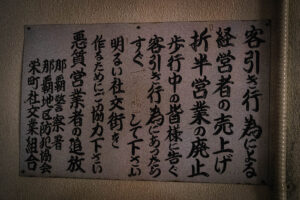 客引き行為による
経営者の売上げ
折半営業の廃止
歩行中の皆様に告ぐ
客引き行為にあったら
すぐ　　して下さい
明るい社交街を
作るためにご協力下さい
悪質営業者の追放
那覇警察署
那覇地区防犯協会
栄町社交業組合